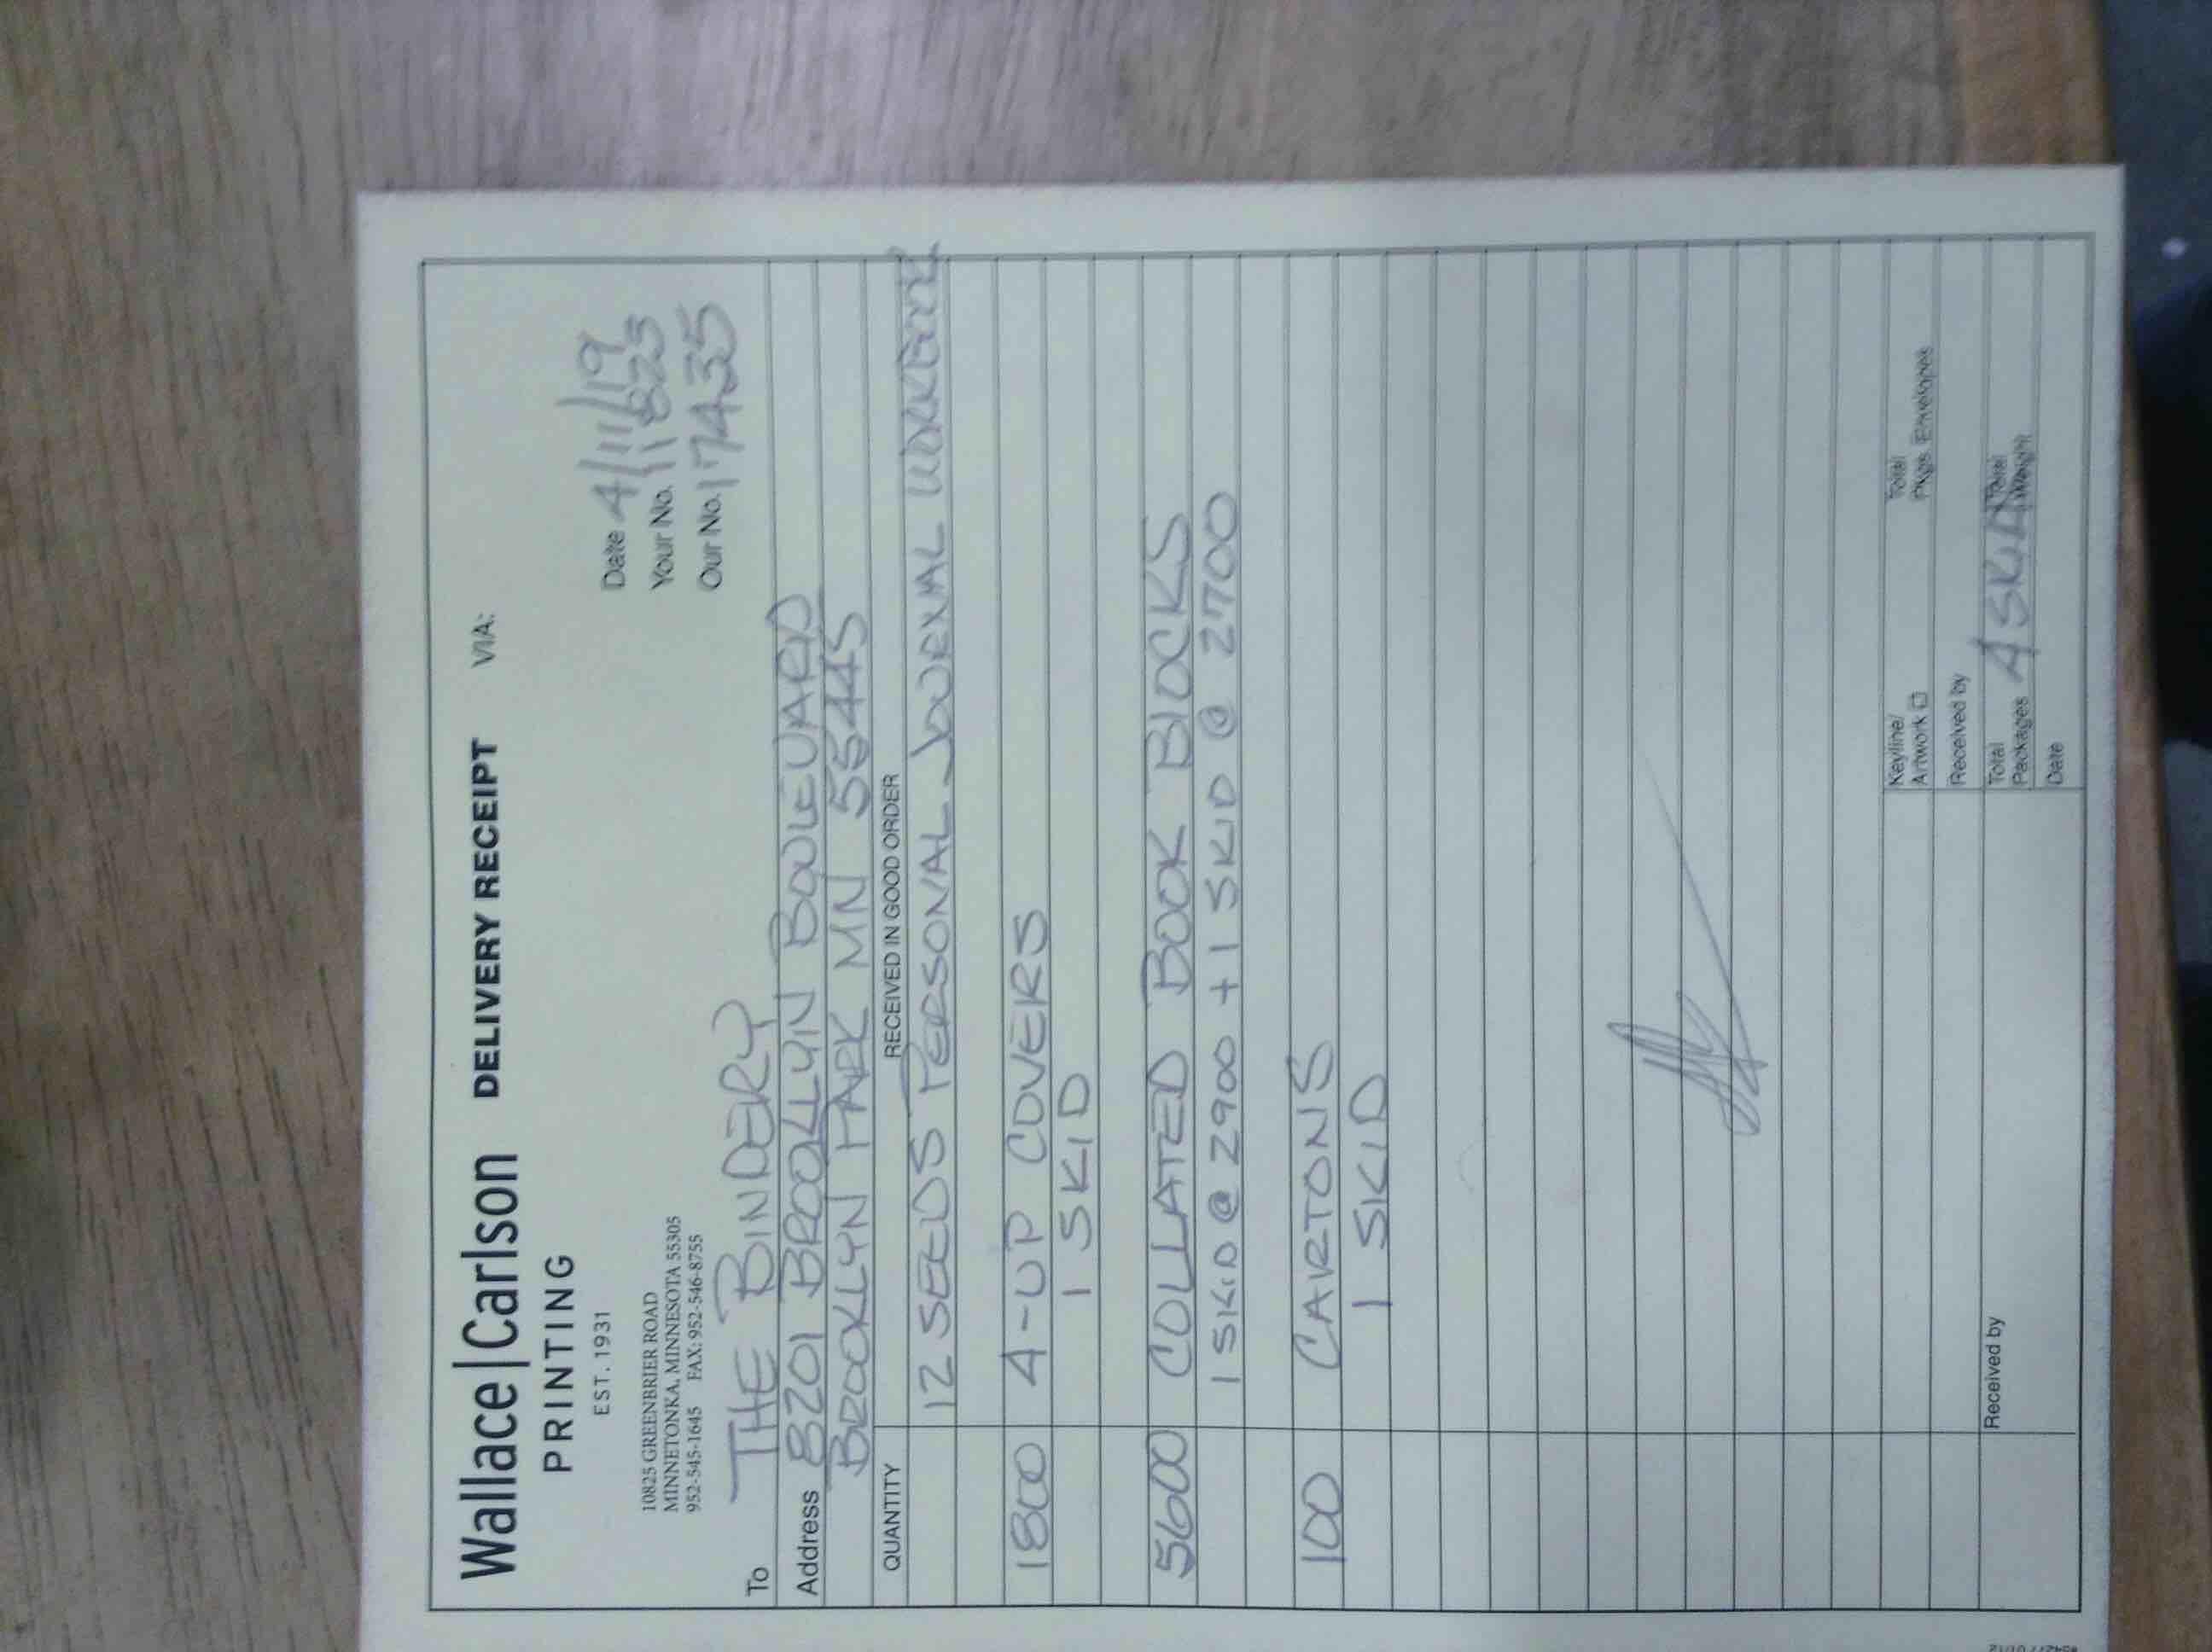 Wallace|Carlson DELIVERY RECEIPT VIA:
PRINTING
EST. 1931
Date 4/11/19
10825 GREENBRIER ROAD
MINNETONKA, MINNESOTA 55305
952-545-1645 FAX: 952-546-8755
Your No. 11823
Our No. 17435
To THE BINDERY
Address 8201 BROOLLYN BOULEVARD
BROOKLYN PARK MN 55445
QUANTITY RECEIVED IN GOOD ORDER
12 SEEDS PERSONAL JOURNAL WORKBOOK
1800 4-UP COVERS
1 SKID
5600 COLLATED BOOK BLOCKS
1 SKID @ 2900 + 1 SKID @ 2700
100 CARTONS
1 SKID
Keyline/ Total
Artwork Pkgs. Envelopes
Received by
Received by Total Packages 4 Total Weight
Date